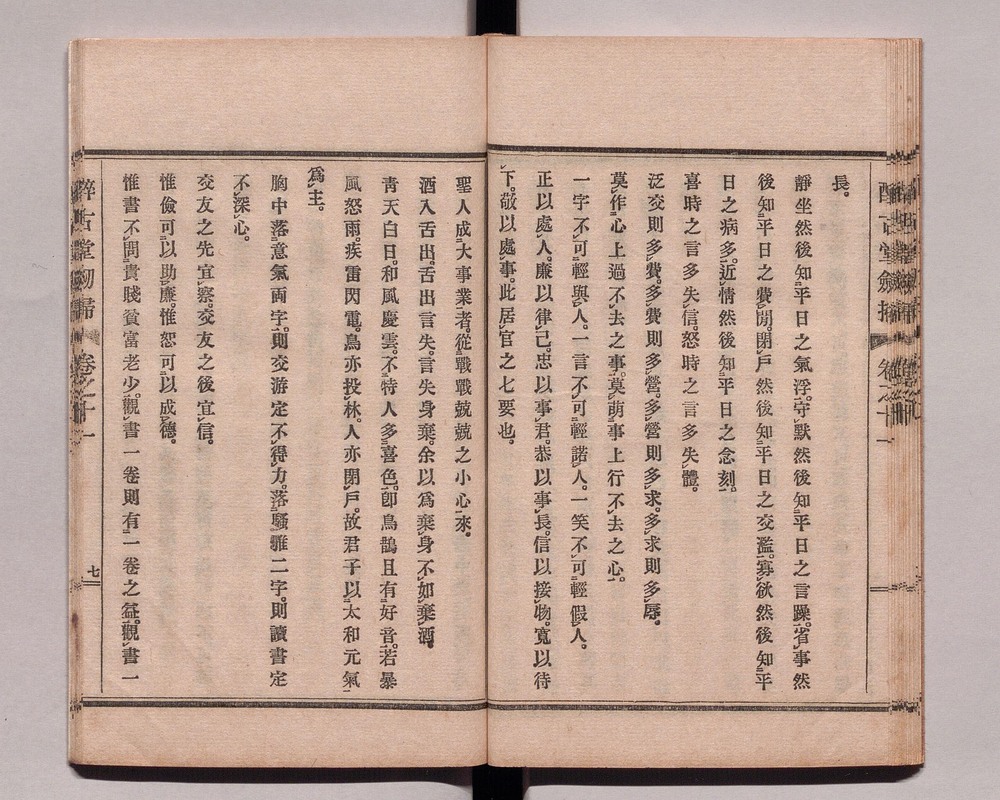 長。
靜坐然後知平日之氣浮。守默然後知平日之言躁。省事然
後知平日之費閒。閉戶然後知平日之交濫。寡欲然後知平
日之病多。近情然後知平日之念刻。
喜時之言多失信。怒時之言多失體。
泛交則多費。多費則多營。多營則多求。多求則多辱。
莫作心上過不去之事。莫萌事上行不去之心。
一字不可輕與人。一言不可輕諾人。一笑不可輕假人。
正以處人。廉以律己。忠以事君。恭以事長。信以接物。寬以待
下。敬以處事。此居官之七要也。
聖人成大事業者。從戰戰兢兢之小心來。
酒入舌出。舌出言失。言失身棄。余以爲棄身不如棄酒。
靑天白日。和風慶雲。不特人多喜色。卽鳥鵲且有好音。若暴
風怒雨。疾雷閃電。鳥亦投林。人亦閉戶。故君子以太和元氣
爲主。
胸中落意氣兩字。則交游定不得力。落騷雅二字。則讀書定
不深心。
交友之先宜察。交友之後宜信。
惟儉可以助廉。惟恕可以成德。
惟書不問貴賤貧富老少。觀書一卷則有一卷之益。觀書一
醉古堂劒掃 卷之十一
七